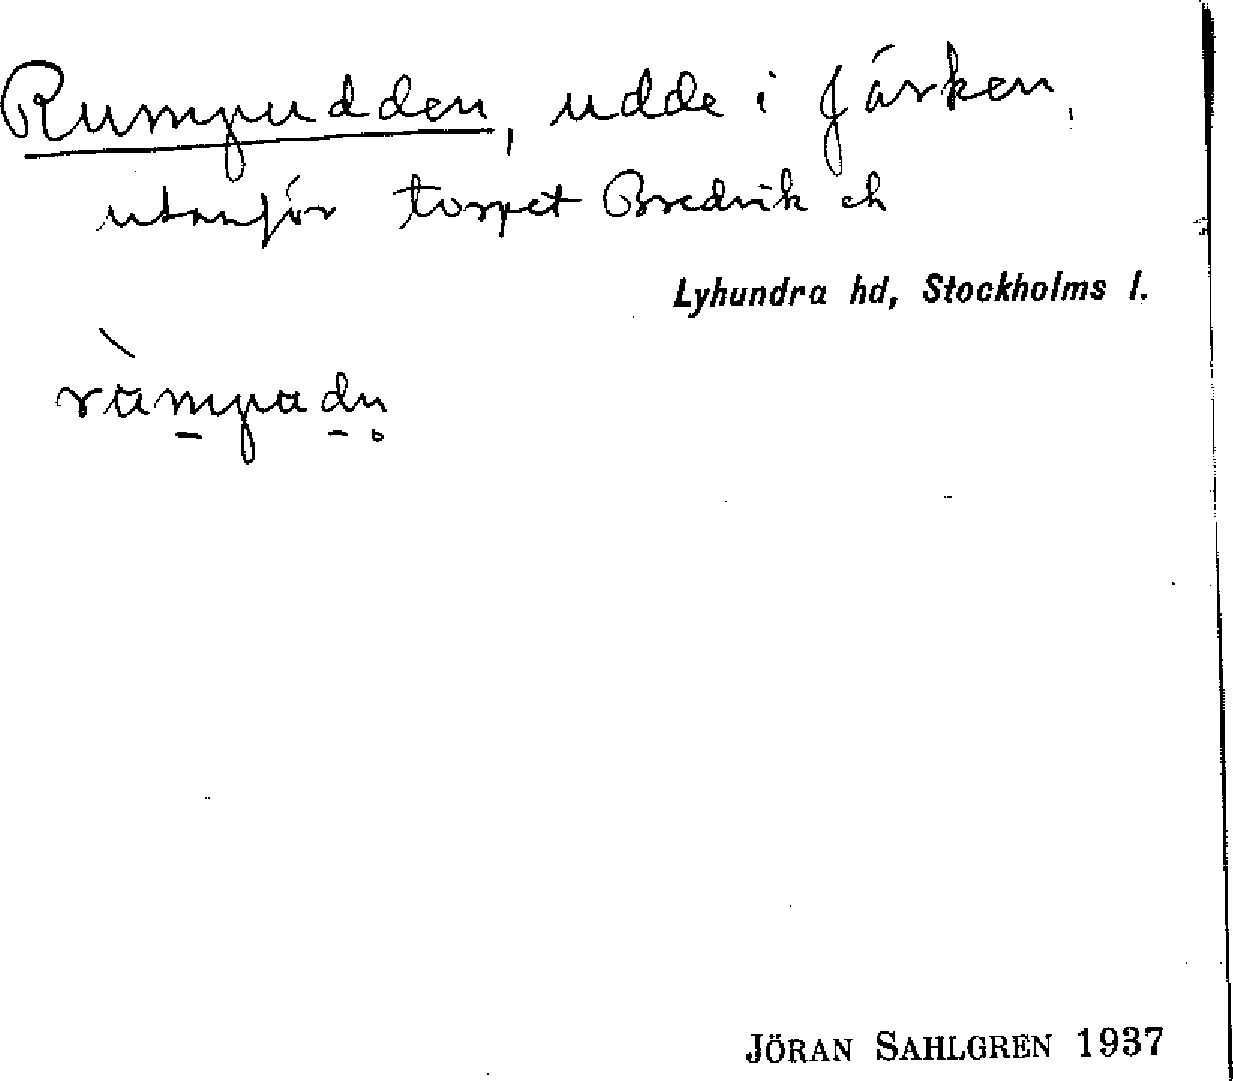 Rumpudden, udde i Järken,
utanför torpet Bredvik
Lyhundra hd, Stockholms l.
JÖRAN SAHLGREN 1937